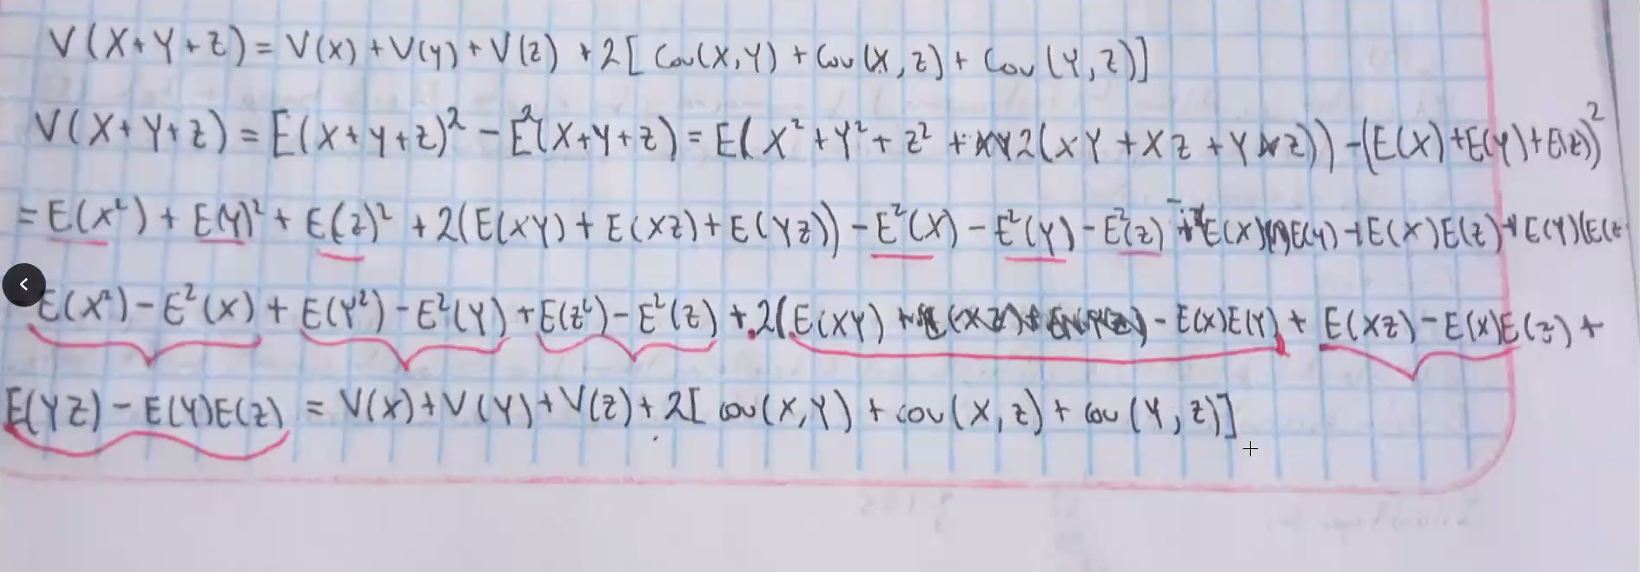 V(X+Y+Z) = V(x) + V(y) + V(z) + 2[ Cov(X,Y) + Cov(X,z) + Cov(Y,z)]
V(X+Y+Z) = E(X+Y+Z)² - E²(X+Y+Z) = E( X² + Y² + z² + 2(XY + XZ + Y z)) - (E(X) + E(Y) + E(z))²
= E(X²) + E(Y)² + E(z)² + 2(E(XY) + E(XZ) + E(YZ)) - E²(X) - E²(Y) - E²(z) E(X) E(Y) + E(X)E(z) + E(Y)(E(z
E(X²) - E²(X) + E(Y²) - E²(Y) + E(z²) - E²(z) + 2(E(XY) - E(X)E(Y) + E(XZ) - E(X)E(z) +
E(YZ) - E(Y)E(z) = V(x) + V(Y) + V(z) + 2[ cov(X,Y) + cov(X,z) + cov(Y,z)]